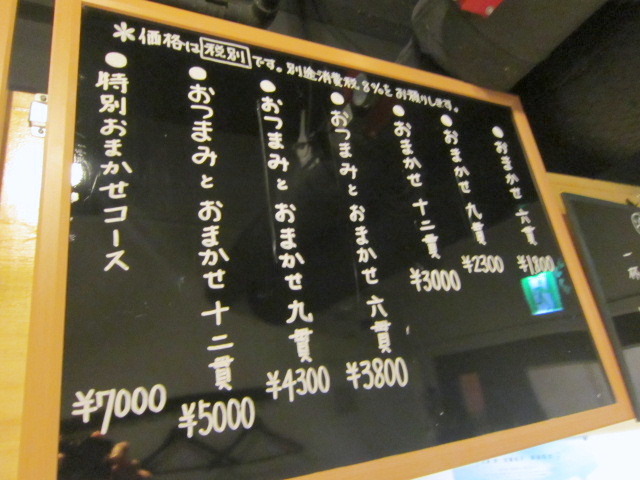 ＊価格は税別です。別途消費税8%をお預りします。
●おまかせ 六貫 ¥1800
●おまかせ 九貫 ¥2300
●おまかせ 十二貫 ¥3000
●おつまみと おまかせ 六貫 ¥3800
●おつまみと おまかせ 九貫 ¥4300
●おつまみと おまかせ 十二貫 ¥5000
●特別おまかせコース ¥7000